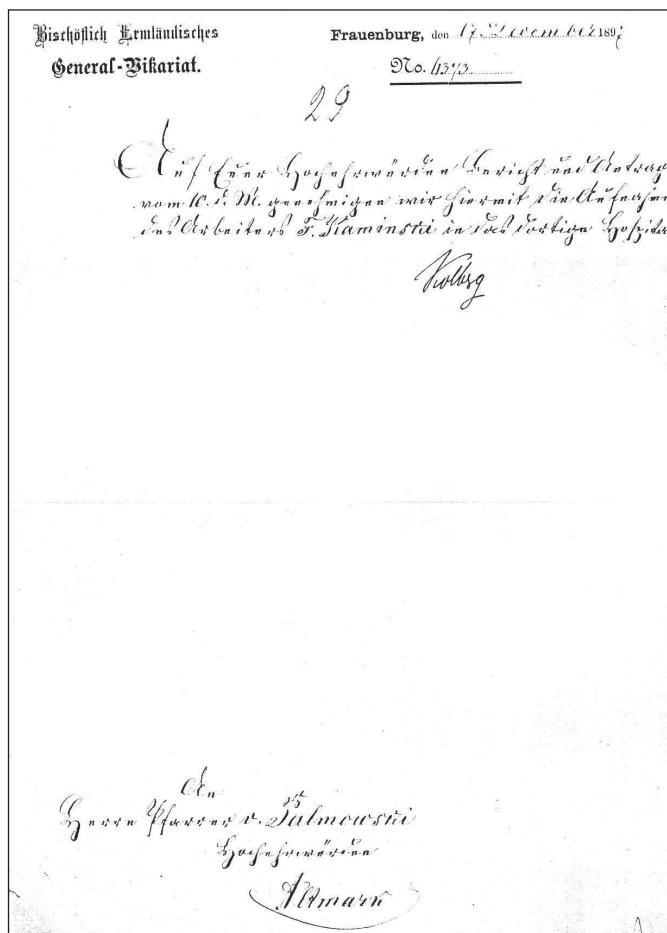 Bischöflich Ermländisches
General-Vikariat.
Frauenburg, den 17. December 189
No. 4373
29
Auf Euer Hochehrwürden Bericht und Antrag
vom 10. d. M. genehmigen wir hiermit die Aufnahme
des Arbeiters F. Kaminski in das dortige Hospita
Kolberg
An
Herrn Pfarrer v.
Hochehrwürden
Altmark